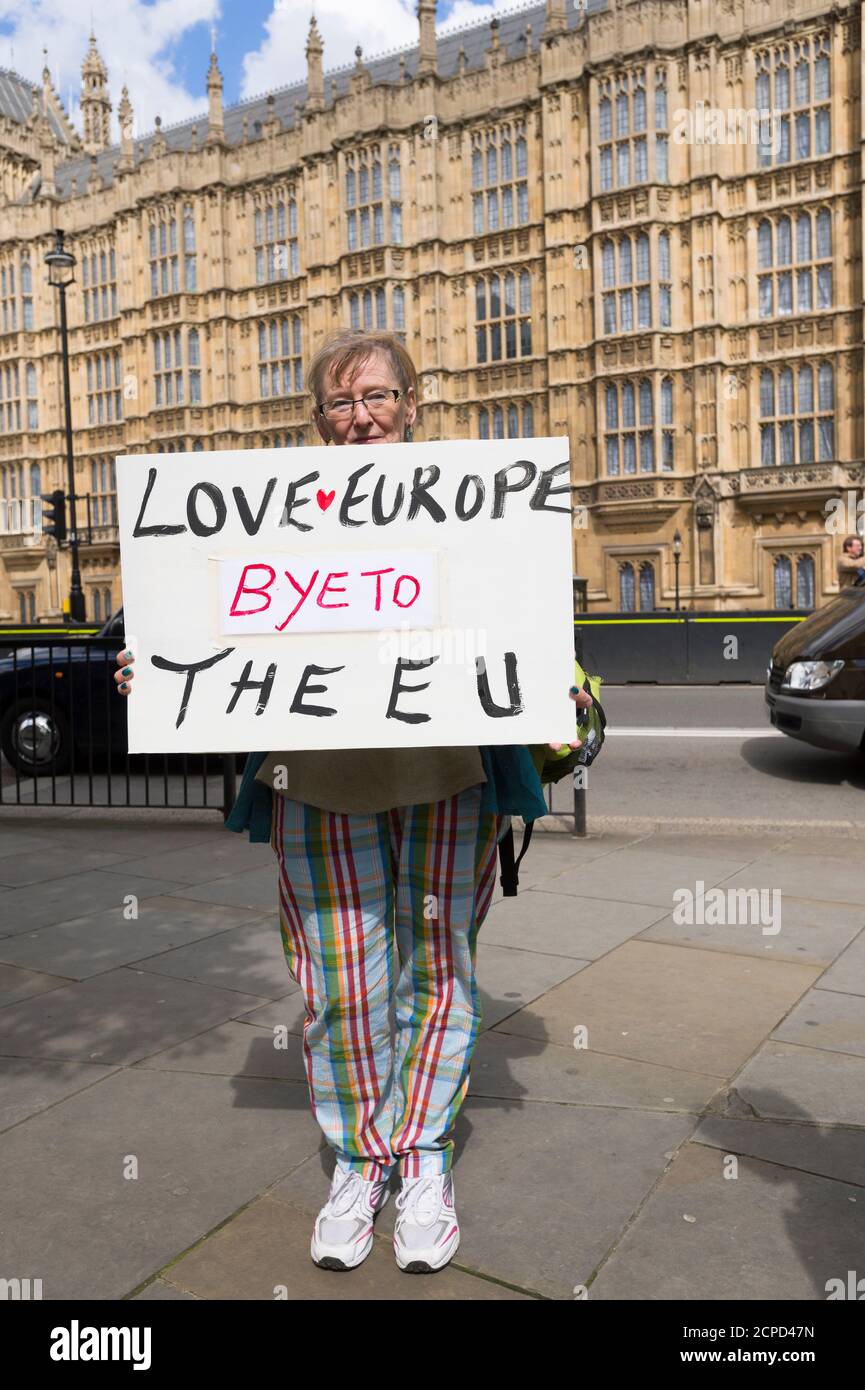 LOVE ♥ EUROPE
BYE TO
THE EU
alamy
Image ID: 2CPD47N
www.alamy.com